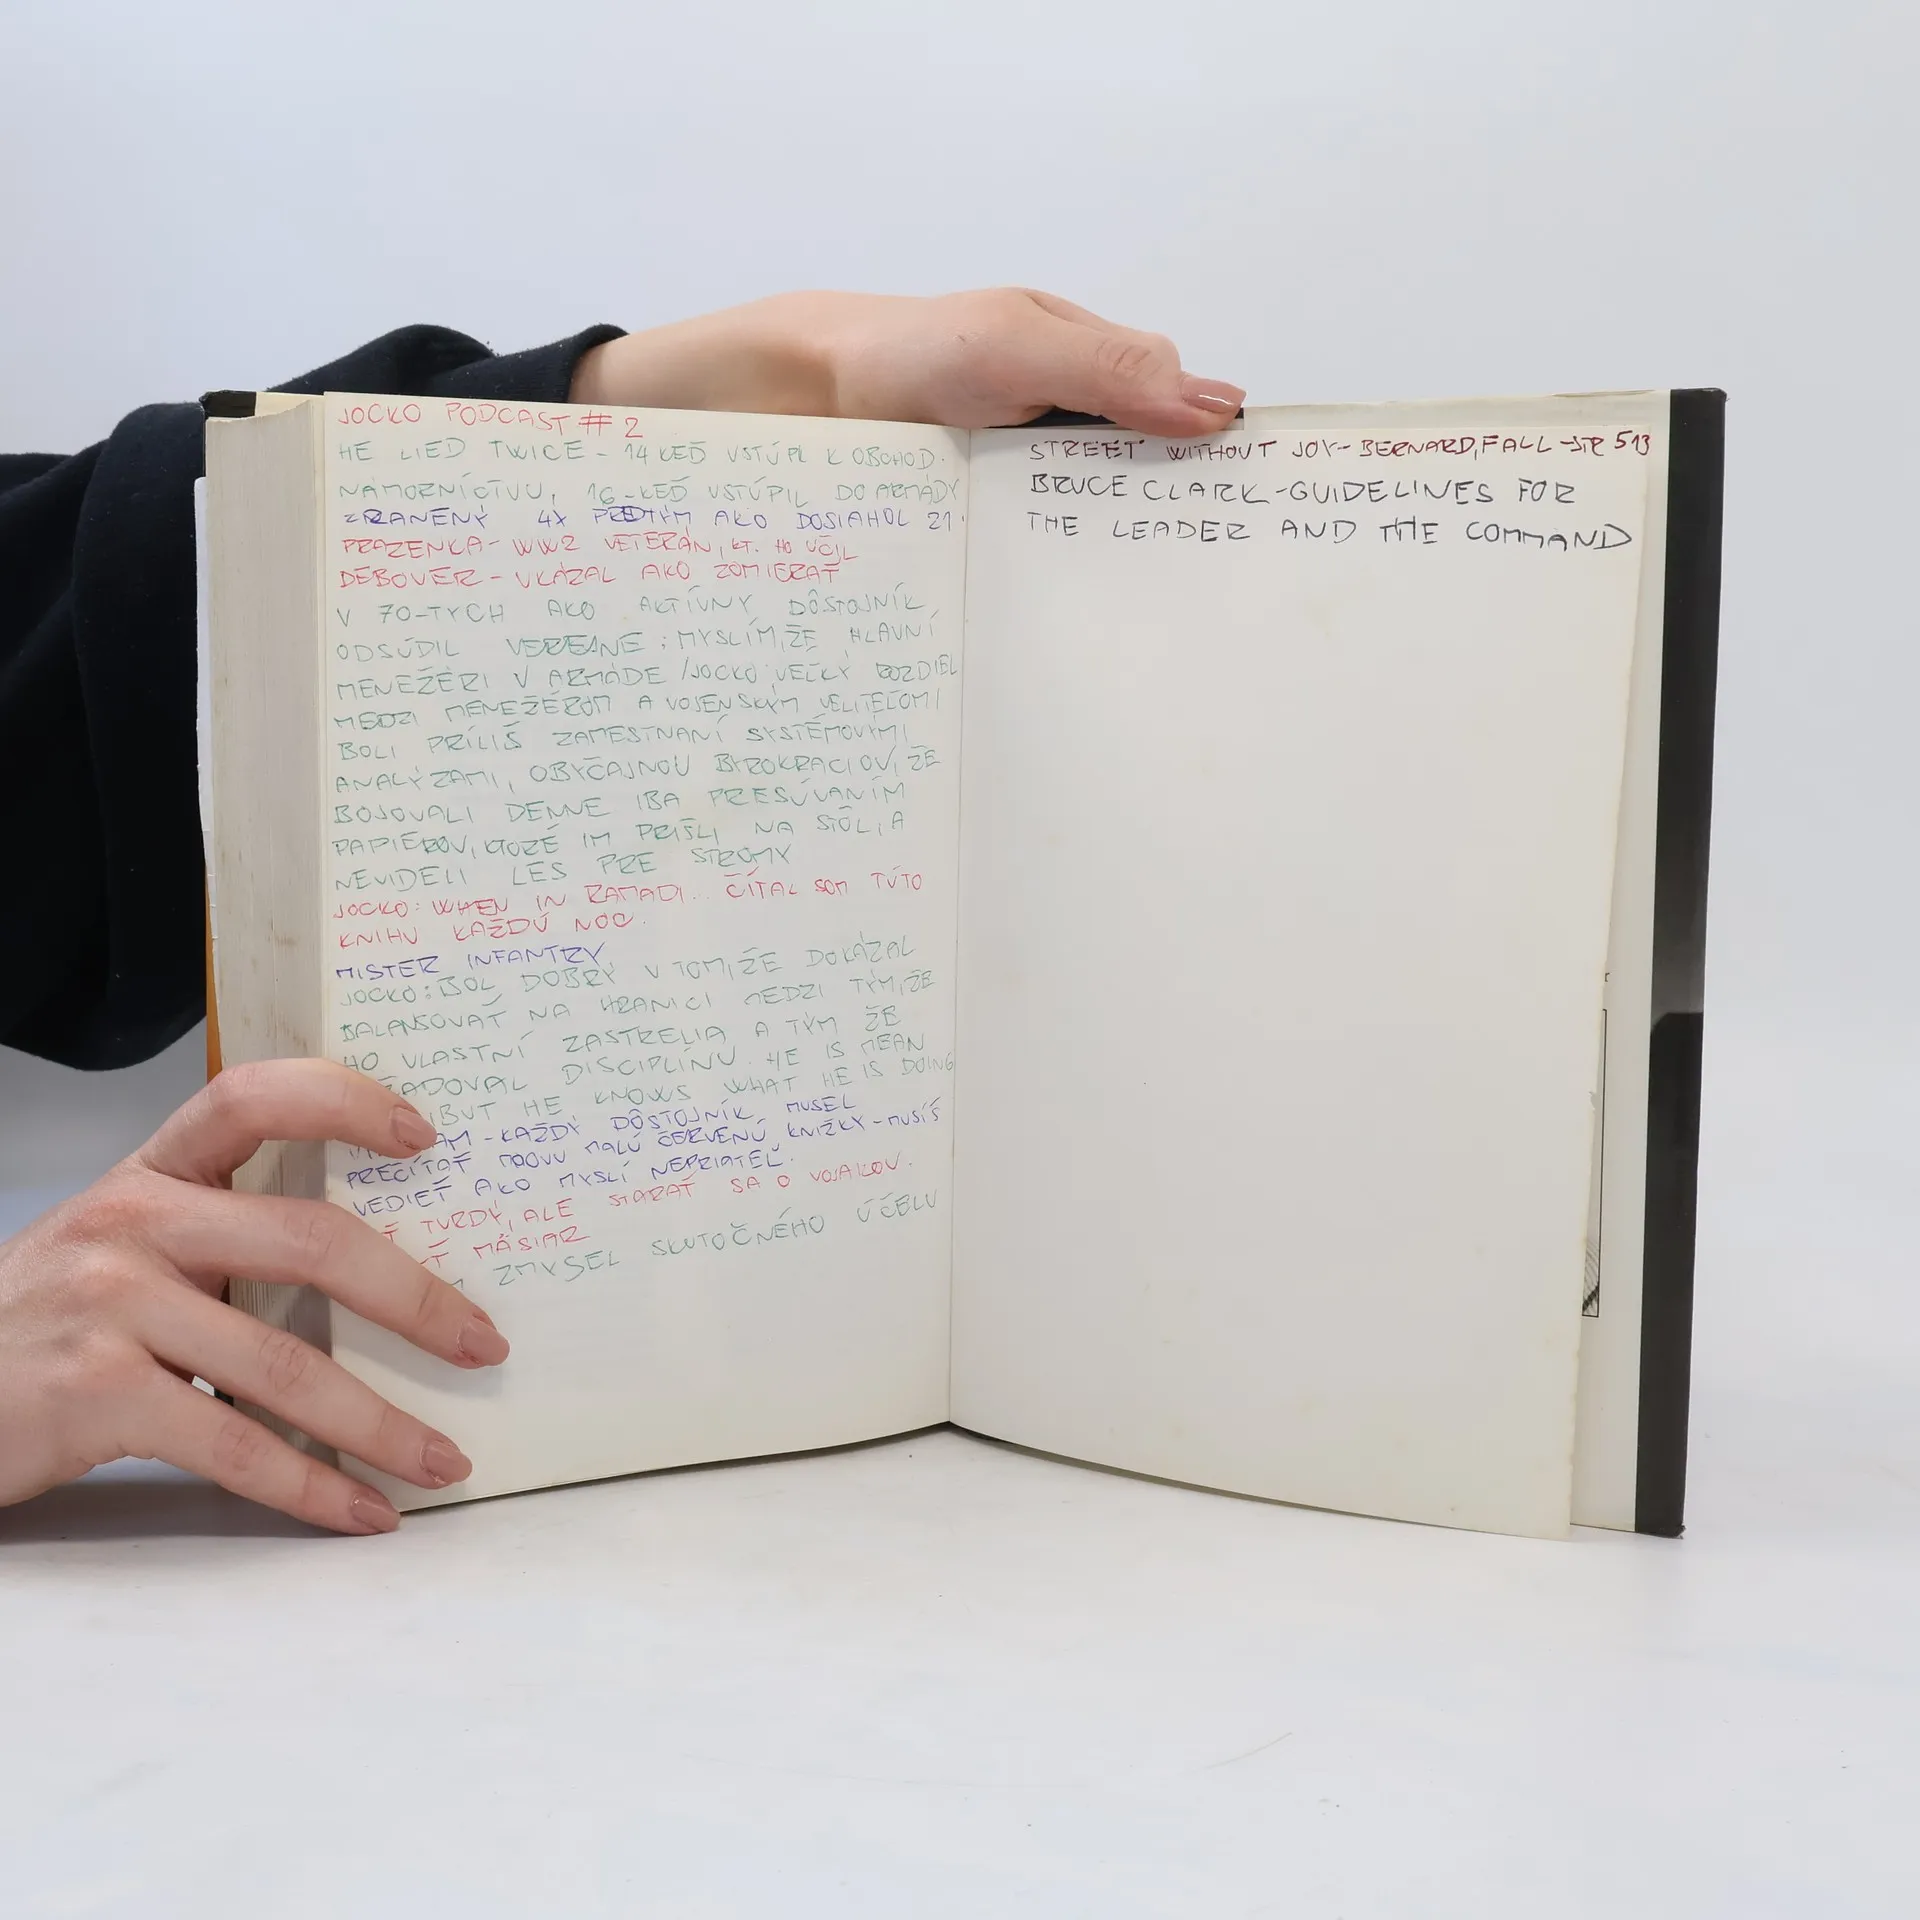 JOCKO PODCAST # 2
HE LIED TWICE - 14 KEĎ VSTÚPIL K OBCHOD.
NÁMORNÍCTVU, 16-KEĎ VSTÚPIL DO ARMÁDY
ZRANENÝ 4X PREDTÝM AKO DOSIAHOL 21.
PRAZENKA - WW2 VETERÁN, KT. HO UČIL
DEBOVER - UKÁZAL AKO ZOMIERAŤ
V 70-TYCH AKO AKTÍVNY DÔSTOJNÍK,
ODSÚDIL VEREJNE: MYSLÍM, ŽE HLAVNÍ
MENEŽÉRI V ARMÁDE /JOCKO: VEĽKÝ ROZDIEL
MEDZI MENEŽÉROM A VOJENSKÝM VELITEĽOM/
BOLI PRÍLIŠ ZAMESTNANÍ SYSTÉMOVÝMI
ANALÝZAMI, OBYČAJNOU BYROKRACIOU, ŽE
BOJOVALI DENNE IBA PRESÚVANÍM
PAPIEROV, KTORÉ IM PRIŠLI NA STÔL, A
NEVIDELI LES PRE STROMY
JOCKO: WHEN IN RAMADI.. ČÍTAL SOM TÚTO
KNIHU KAŽDÚ NOC.
MISTER INFANTRY
JOCKO: BOL DOBRÝ V TOM, ŽE DOKÁZAL
BALANSOVAŤ NA HRANICI MEDZI TÝM, ŽE
HO VLASTNÍ ZASTRELIA A TÝM ŽE
DISCIPLÍNU. HE IS MEAN
BUT HE KNOWS WHAT HE IS DOING
- KAŽDÝ DÔSTOJNÍK MUSEL
PREČÍTAŤ MAOVU MALÚ ČERVENÚ KNIŽKY - MUSÍŠ
VEDIEŤ AKO MYSLÍ NEPRIATEĽ.
TVRDÝ, ALE STARAŤ SA O VOJAKOV.
MÄSIAR
ZMYSEL SKUTOČNÉHO ÚČELU
STREET WITHOUT JOY - BERNARD, FALL - STR 513
BRUCE CLARK - GUIDELINES FOR
THE LEADER AND THE COMMAND